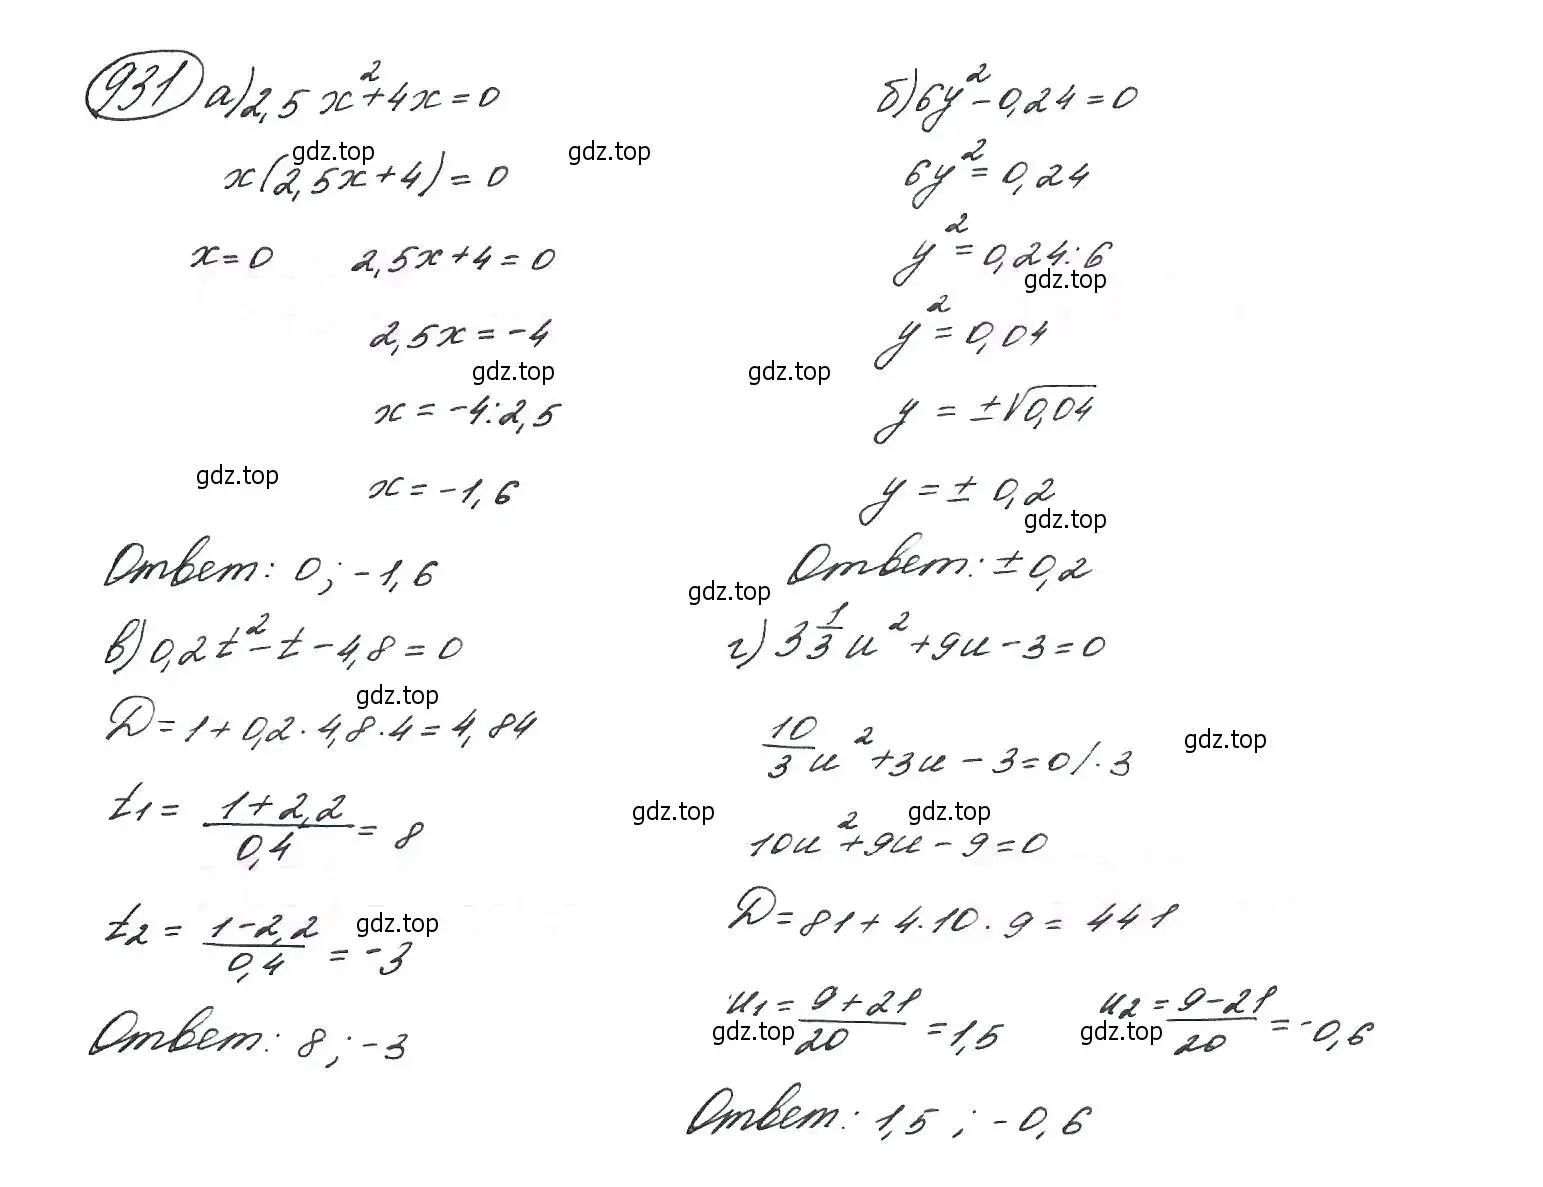 931 а) 2,5x² + 4x = 0
gdz.top gdz.top
x(2,5x + 4) = 0
x = 0 2,5x + 4 = 0
2,5x = -4
gdz.top gdz.top
x = -4 : 2,5
gdz.top
x = -1,6
Ответ: 0; -1,6
б) 6y² - 0,24 = 0
6y² = 0,24
y² = 0,24 : 6
gdz.top
y² = 0,04
y = ±√0,04
y = ± 0,2
gdz.top
Ответ: ± 0,2
gdz.top
в) 0,2t² - t - 4,8 = 0
gdz.top
D = 1 + 0,2 · 4,8 · 4 = 4,84
t₁ = (1 + 2,2)/0,4 = 8
t₂ = (1 - 2,2)/0,4 = -3
gdz.top
Ответ: 8; -3
г) 3 1/3 u² + 9u - 3 = 0
10/3 u² + 3u - 3 = 0 / · 3
gdz.top
gdz.top gdz.top
10u² + 9u - 9 = 0
D = 81 + 4 · 10 · 9 = 441
u₁ = (9 + 21)/20 = 1,5 u₂ = (9 - 21)/20 = -0,6
gdz.top gdz.top
Ответ: 1,5 ; -0,6